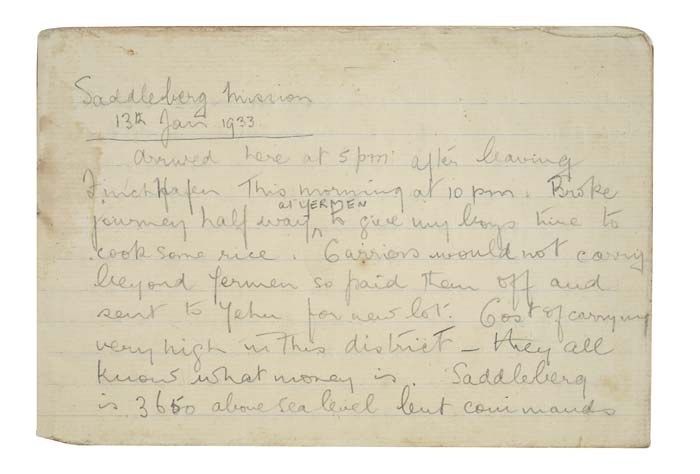 Saddleberg Mission
13th Jan 1933.
Arrived here at 5 pm after leaving
Finchhafen This morning at 10 pm. Broke
at YERMEN
journey half way to give my boys time to
cook some rice. Carriers would not carry
beyond Yermen so paid them off and
sent to Yehu for new lot. Cost of carrying
very high in This district – they all
know what money is. Saddleberg
is 3650 above sea level but commands